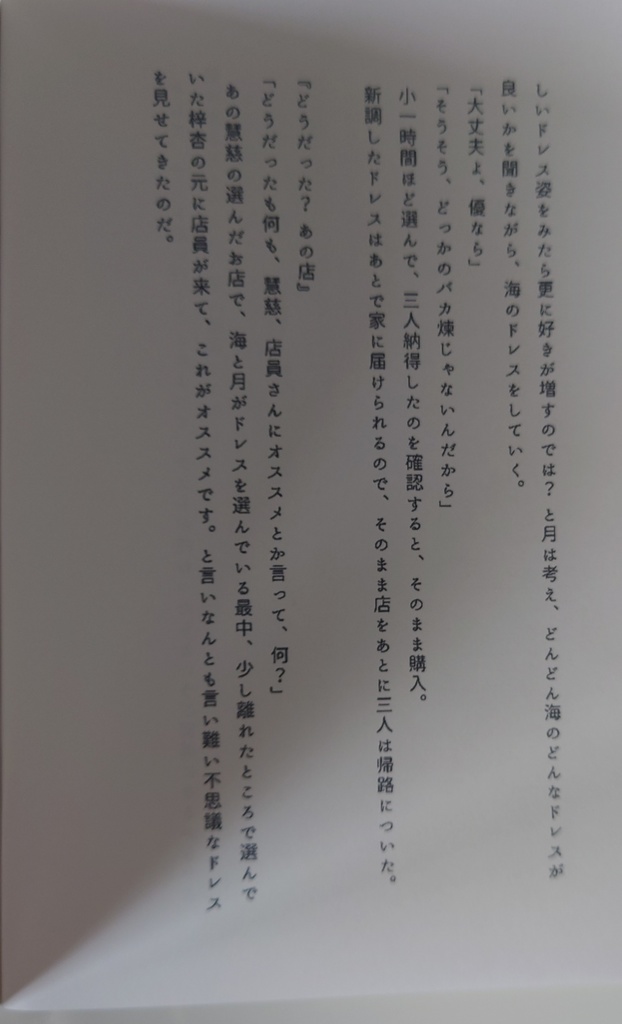 しいドレス姿をみたら更に好きが増すのでは？ と月は考え、どんどん海のどんなドレスが
良いかを聞きながら、海のドレスをしていく。
「大丈夫よ、優なら」
「そうそう、どっかのバカ煉じゃないんだから」
小一時間ほど選んで、三人納得したのを確認すると、そのまま購入。
新調したドレスはあとで家に届けられるので、そのまま店をあとに三人は帰路についた。
『どうだった？ あの店』
「どうだったも何も、慧慈、店員さんにオススメとか言って、何？」
あの慧慈の選んだお店で、海と月がドレスを選んでいる最中、少し離れたところで選んで
いた梓杏の元に店員が来て、これがオススメです。と言いなんとも言い難い不思議なドレス
を見せてきたのだ。